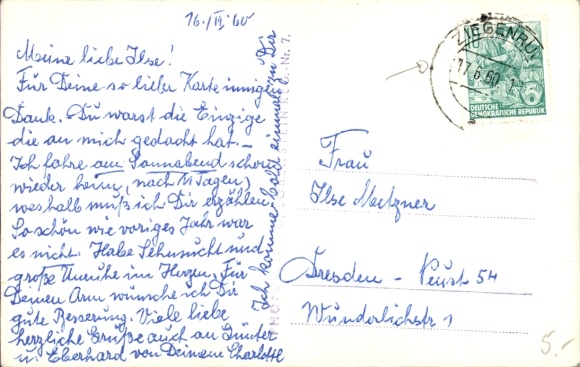 16./VI. 60
Meine liebe Ilse!
Für Deine so liebe Karte innigen
Dank. Du warst die Einzige
die an mich gedacht hat. –
Ich fahre am Sonnabend schon
wieder heim, (nach 11 Tagen,)
weshalb muß ich Dir erzählen
So schön wie voriges Jahr war
es nicht. Habe Sehnsucht und
große Unruhe im Herzen, Für
Deinen Arm wünsche ich Dir
gute Besserung. Viele liebe
herzliche Grüße auch an Günter
u. Eberhard von Deinem Charlotte
Ich komme bald einmal zu Dir
ZIEGENRÜ
17.6.60
DEUTSCHE
DEMOKRATISCHE REPUBLIK
Frau
Ilse Metzner
Dresden – Neust 54
Wunderlichstr 1
5.-